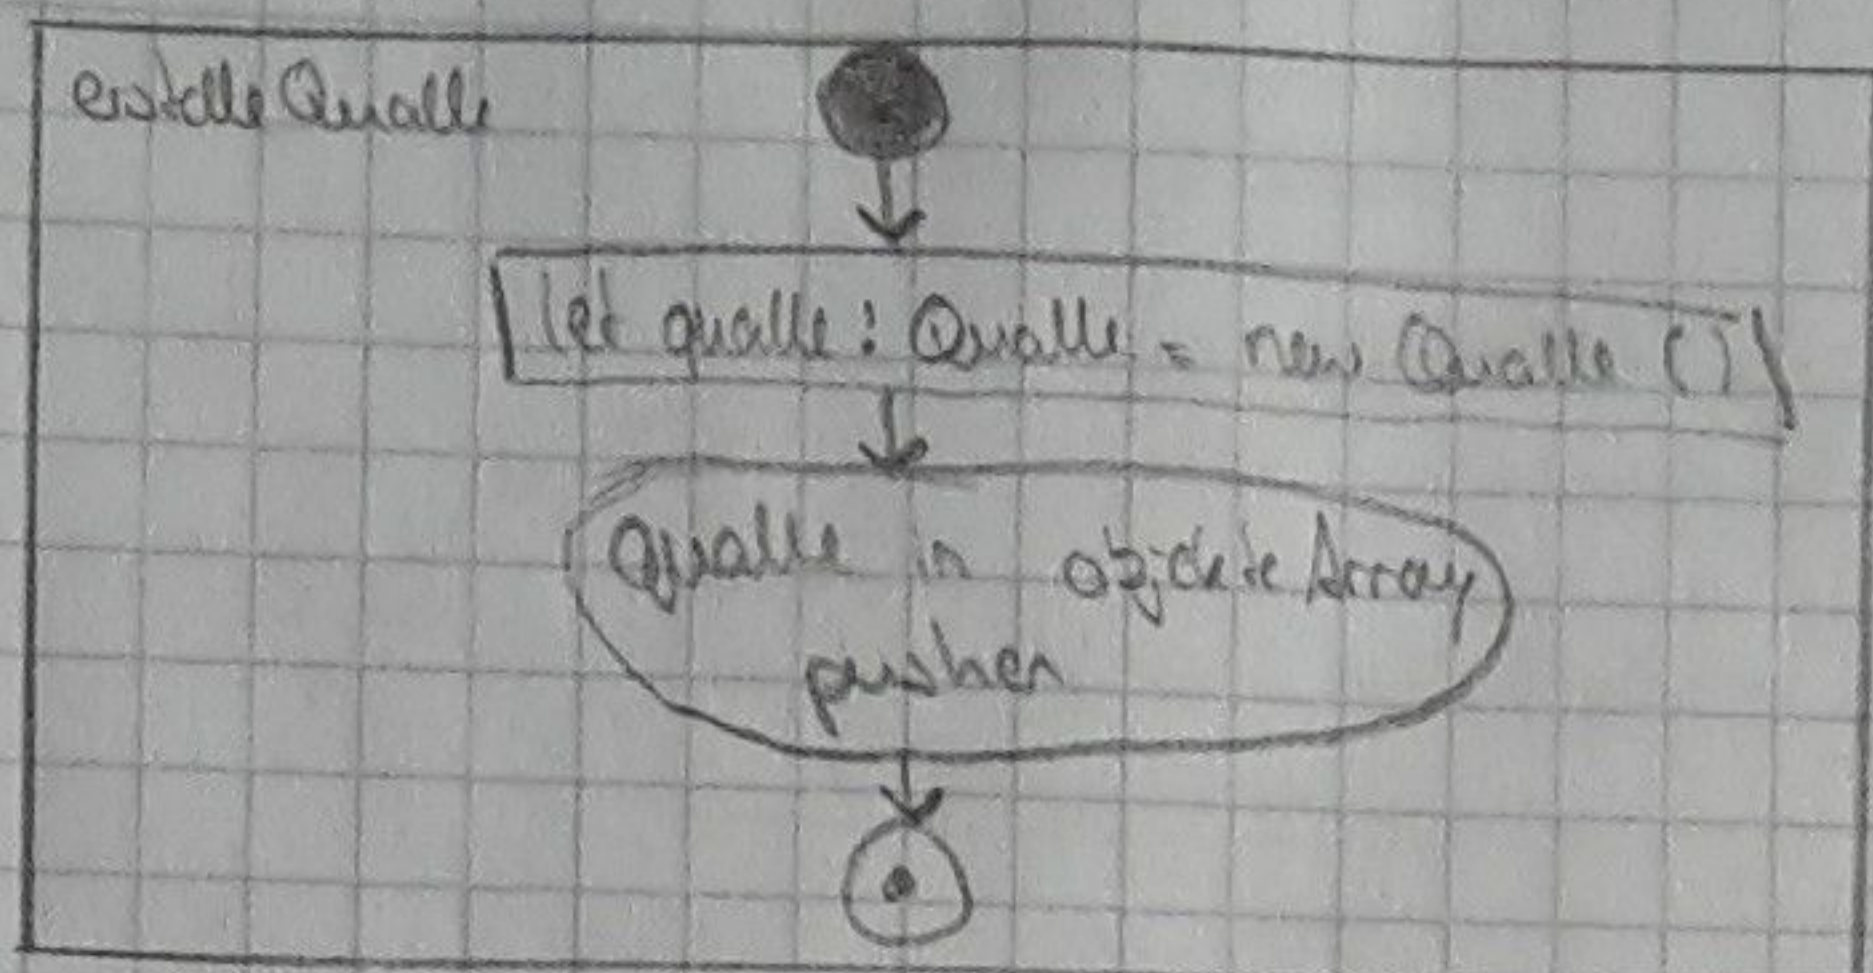 erstelle Qualle
let qualle: Qualle = new Qualle ()
Qualle in objekte Array
pushen